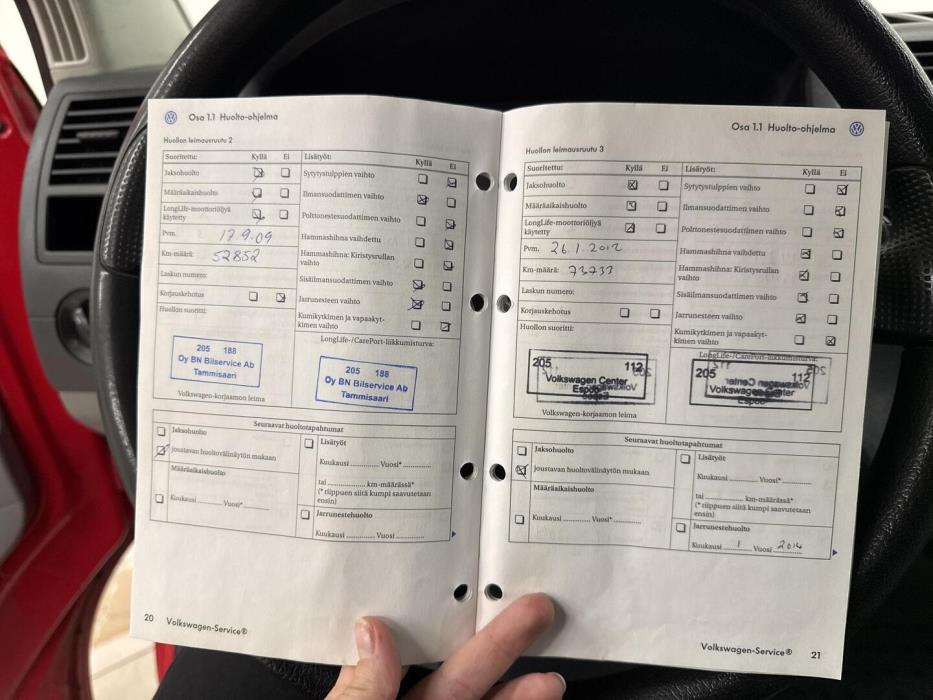 Osa 1.1 Huolto-ohjelma
Huollon leimausruutu 2
Suoritettu: Kyllä Ei
Jaksohuolto
Määräaikaishuolto
LongLife-moottoriöljyä
käytetty
Pvm. 17.9.09
Km-määrä: 52852
Laskun numero:
Korjauskehotus
Huollon suoritti:
205 188
Oy BN Bilservice Ab
Tammisaari
Volkswagen-korjaamon leima
Lisätyöt: Kyllä Ei
Sytytystulppien vaihto
Ilmansuodattimen vaihto
Polttonestesuodattimen vaihto
Hammashihna vaihdettu
Hammashihna: Kiristysrullan
vaihto
Sisäilmansuodattimen vaihto
Jarrunesteen vaihto
Kumikytkimen ja vapaakyt-
kimen vaihto
LongLife-/CarePort-liikkumisturva:
205 188
Oy BN Bilservice Ab
Tammisaari
Seuraavat huoltotapahtumat
Jaksohuolto
joustavan huoltovälinäytön mukaan
Määräaikaishuolto
Kuukausi ............ Vuosi* ............
Lisätyöt
Kuukausi ............ Vuosi* ............
tai ............ km-määrässä*
(* riippuen siitä kumpi saavutetaan
ensin)
Jarrunestehuolto
Kuukausi ............ Vuosi ............
20 Volkswagen-Service®
Osa 1.1 Huolto-ohjelma
Huollon leimausruutu 3
Suoritettu: Kyllä Ei
Jaksohuolto
Määräaikaishuolto
LongLife-moottoriöljyä
käytetty
Pvm. 26.1.2012
Km-määrä: 73733
Laskun numero:
Korjauskehotus
Huollon suoritti:
205 112
Volkswagen Center
Espoo
Volkswagen-korjaamon leima
Lisätyöt: Kyllä Ei
Sytytystulppien vaihto
Ilmansuodattimen vaihto
Polttonestesuodattimen vaihto
Hammashihna vaihdettu
Hammashihna: Kiristysrullan
vaihto
Sisäilmansuodattimen vaihto
Jarrunesteen vaihto
Kumikytkimen ja vapaakyt-
kimen vaihto
LongLife-/CarePort-liikkumisturva:
205 112
Volkswagen Center
Espoo
Seuraavat huoltotapahtumat
Jaksohuolto
joustavan huoltovälinäytön mukaan
Määräaikaishuolto
Kuukausi ............ Vuosi* ............
Lisätyöt
Kuukausi ............ Vuosi* ............
tai ............ km-määrässä*
(* riippuen siitä kumpi saavutetaan
ensin)
Jarrunestehuolto
Kuukausi 1 Vuosi 2014
Volkswagen-Service® 21